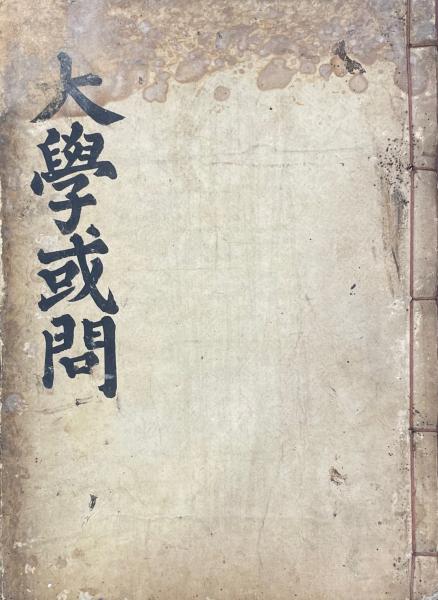 大學或問